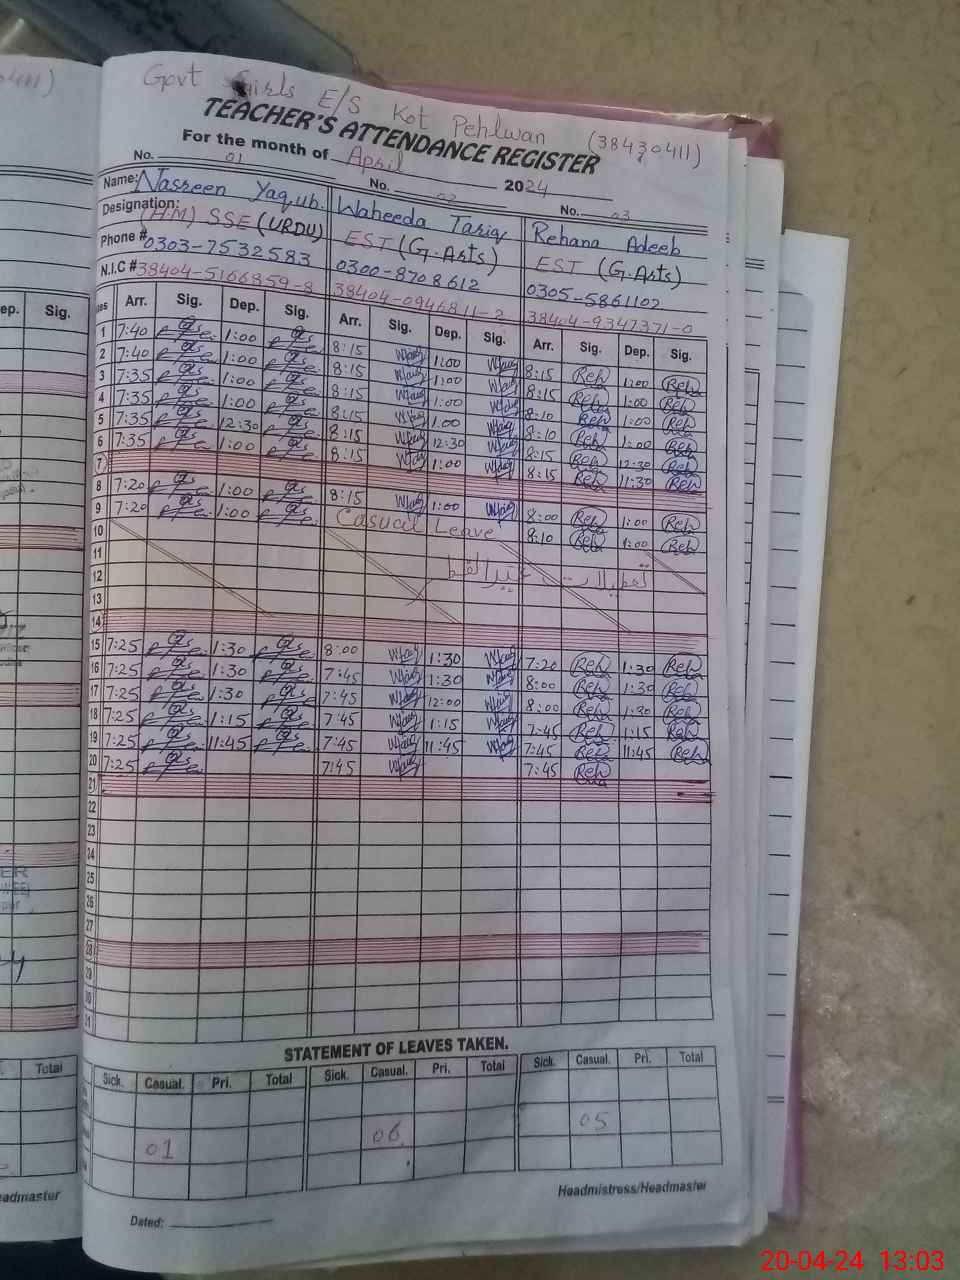 Govt Girls E/S Kot Pehlwan (38430411)
TEACHER'S ATTENDANCE REGISTER
For the month of April 2024
No. 01 No. 02 No. 03
Name: Nasreen Yaqub. Waheeda Tariq Rehana Adeeb
Designation: (HM) SSE (URDU) EST (G.Arts) EST (G.Arts)
Phone # 0303-7532583 0300-8708612 0305-5861102
N.I.C # 38404-5166859-8 38404-0946811-2 38404-9347371-0
Arr. Sig. Dep. Sig. Arr. Sig. Dep. Sig. Arr. Sig. Dep. Sig.
1 7:40 1:00 8:15 1:00 8:15 Reh 1:00 Reh
2 7:40 1:00 8:15 1:00 8:15 Reh 1:00 Reh
3 7:35 1:00 8:15 1:00 8:10 Reh 1:00 Reh
4 7:35 1:00 8:15 1:00 8:10 Reh 1:00 Reh
5 7:35 12:30 8:15 12:30 8:15 Reh 12:30 Reh
6 7:35 1:00 8:15 1:00 8:15 Reh 11:30 Reh
7
8 7:20 1:00 8:15 1:00 8:00 Reh 1:00 Reh
9 7:20 1:00 Casual Leave 8:10 Reh 1:00 Reh
10
11
12 تعطیلات عیدالفطر
13
14
15 7:25 1:30 8:00 1:30 7:20 Reh 1:30 Reh
16 7:25 1:30 7:45 1:30 8:00 Reh 1:30 Reh
17 7:25 1:30 7:45 12:00 8:00 Reh 1:30 Reh
18 7:25 1:15 7:45 1:15 7:45 Reh 1:15 Reh
19 7:25 11:45 7:45 11:45 7:45 Reh 11:45 Reh
20 7:25 7:45 7:45 Reh
21
22
23
24
25
26
27
28
29
30
31
STATEMENT OF LEAVES TAKEN.
Sick. Casual. Pri. Total Sick. Casual. Pri. Total Sick. Casual. Pri. Total
01 06 05
Headmistress/Headmaster
Dated:
ep. Sig.
Total
eadmaster
20-04-24 13:03